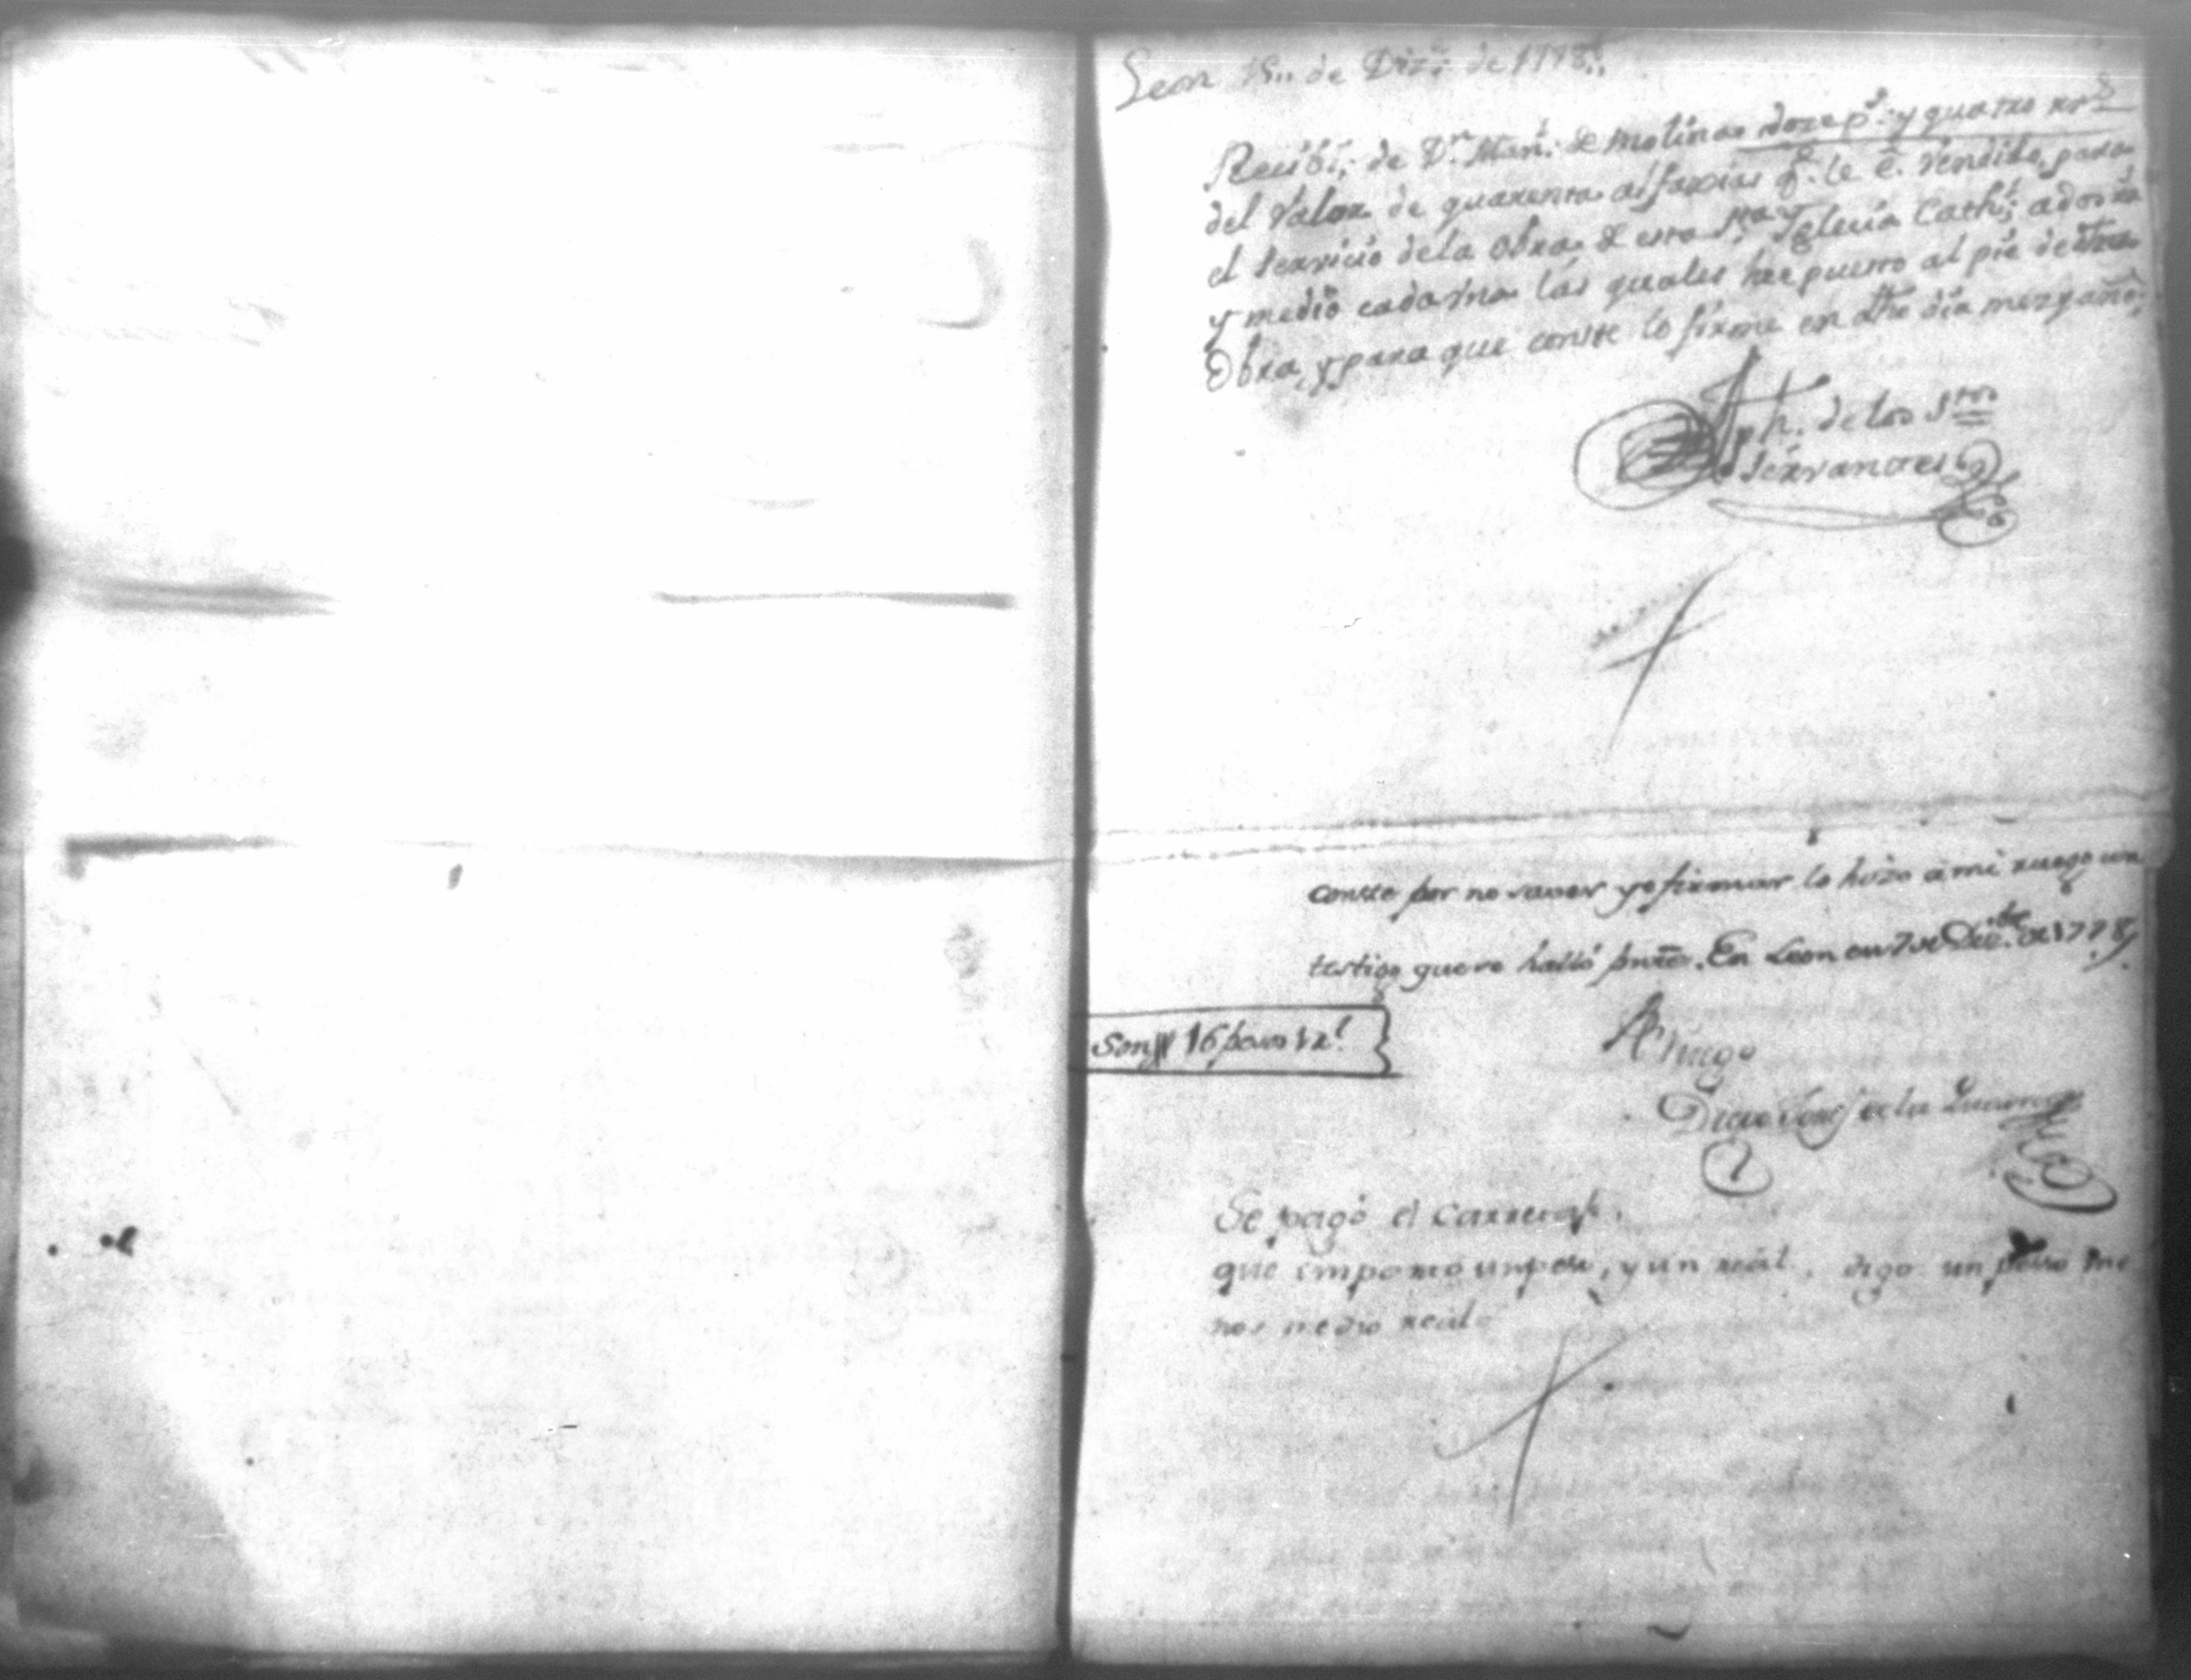 Leon 15,, de Diz.e de 1778,,
Recibí, de D.n Man.l de Molina doze p.s y quatro rr.s
del Valor de quarenta alfaxias q.e le e. Vendido, para
el Servicio dela Obra, de esta S.ta Yglecia Cath.l ados rr
y medio cada vna las quales hee puesto al pie de dha
Obra, y para que conste lo firme en dho día mez y año,
Jph. de los S.tos
Servantes
conste por no saver yo firmar lo hizo á mi ruego un
testigo que se halló pnte. En Leon en 7 de Diz.bre de 1778
Son,, 16 pesos 1 r.l
A ruego
Diego de la
Se pagó el
que importó un peso, y un real, digo un peso me
nos medio real